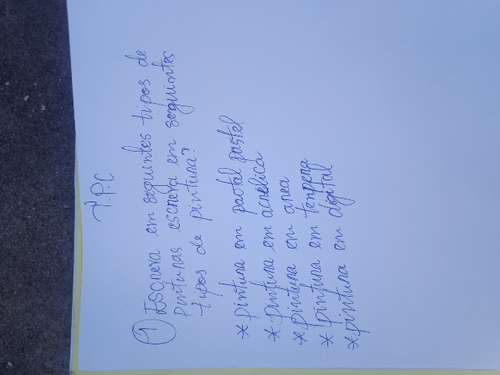 T.P.C
1) Escreva em seguintes tipos de
pinturas escreva em seguintes
tipos de pintura?
* pintura em pastel pastel
* pintura em acrelica
* pintura em area
* pintura em tempera
* pintura em digital